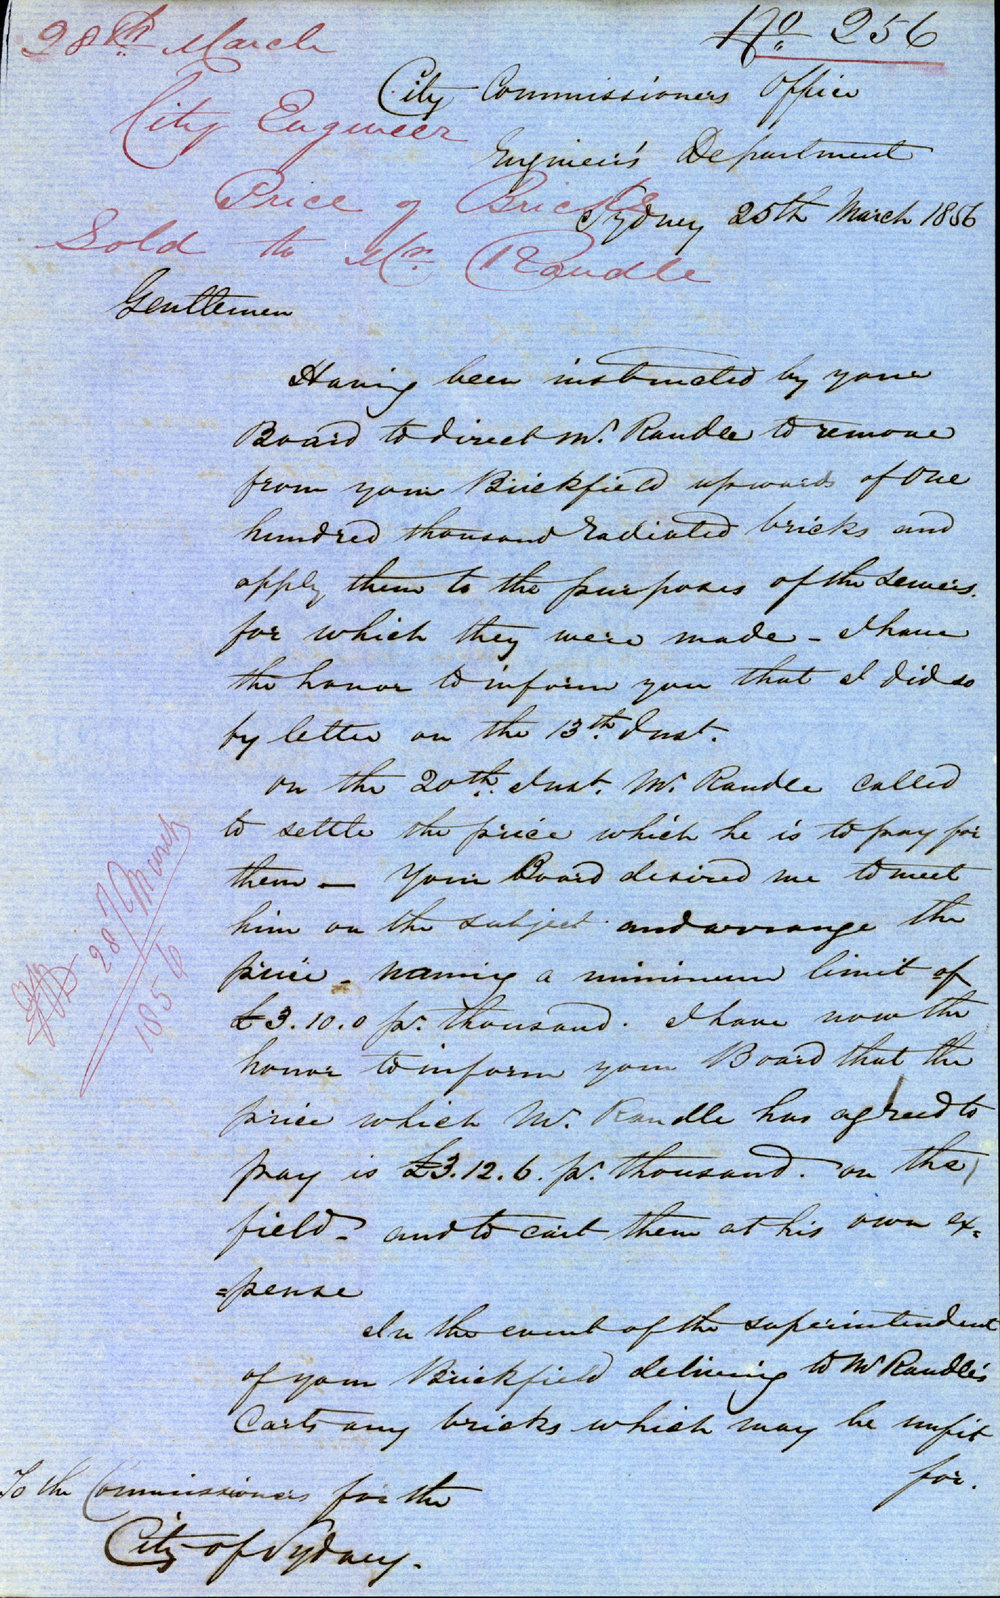 No 256
28th March
City Engineer
Price of Bricks
Sold to Mr. Randle
City Commissioners Office
Engineer's Department
Sydney 25th March 1856
Gentlemen
Having been instructed by your
Board to direct Mr. Randle to remove
from your Brickfield upwards of One
hundred thousand radiated bricks and
apply them to the purposes of the Sewers.
for which they were made - I have
the honor to inform you that I did so
by letter on the 13th. Inst.
On the 20th. Inst. Mr. Randle called
to settle the price which he is to pay for
them - Your Board desired me to meet
him on the subject and arrange the
price - naming a minimum limit of
£3.10.0 pr. thousand. I have now the
honor to inform your Board that the
price which Mr. Randle has agreed to
pay is £3.12.6. pr. thousand. on the
field - and to cart them at his own ex=
=pense
In the event of the superintendent
of your Brickfield delivering to Mr Randle's
Carts any bricks which may be unfit
for.
To the Commissioners for the
City of Sydney.
28/March
1856